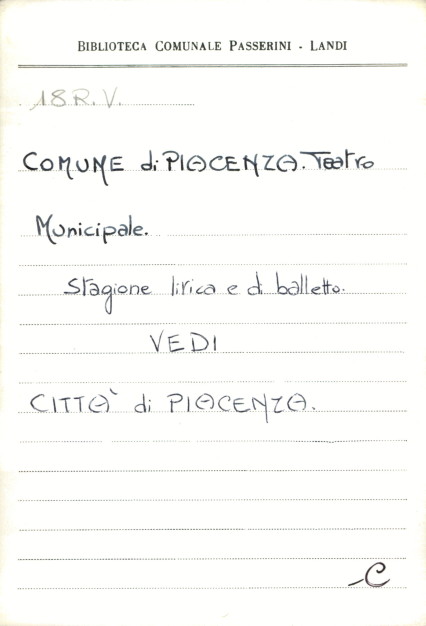 BIBLIOTECA COMUNALE PASSERINI - LANDI
18 R.V.
COMUNE di PIACENZA. Teatro
Municipale.
Stagione lirica e di balletto.
VEDI
CITTA' di PIACENZA.
-C